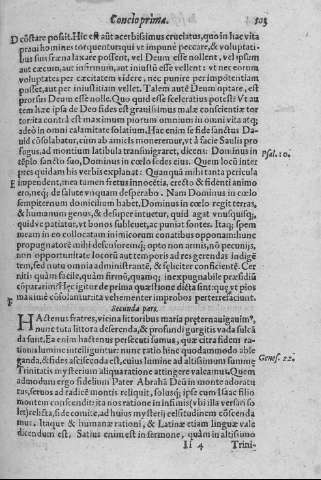 Concio prima. 503
D cõstare possit. Hic est aũt acerbissimus cruciatus, quo in hac vita
praui homines torquentur: qui vt impunè peccare, & voluptati-
bus suis fræna laxare possent, vel Deum esse nollent, vel ipsum
aut cæcum, aut infirmum, aut iniustũ esse vellent: vt nec eorum
voluptates per cæcitatem videre, nec punire per impotentiam
posset, aut per iniustitiam vellet. Talem autē Deum optare, est
prorsus Deum esse nolle. Quo quid esse sceleratius potest? Vt au
tem hæc ipsa de Deo fides est grauissimus malæ conscientiæ tor
tor: ita contrà est maximum piorum omnium in omni vita atq;
adeò in omni calamitate solatium. Hac enim se fide sanctus Da-
uid cõsolabatur, cùm ab amicis moneretur, vt à facie Saulis pro
fugus, ad montium latibula transmigraret, dicens: Dominus in
tēplo sancto suo, Dominus in cœlo sedes eius. Quem locũ inter
Psal. 10.
pres quidam his verbis explanat: Quanquã mihi tanta pericula
E impendent, mea tamen fretus innocētia, erecto & fidenti animo
ero, neq; de salute vnquam desperabo. Nam Dominus in cœlo
sempiternum domicilium habet. Dominus in cœlo regit terras,
& humanum genus, & desuper intuetur, quid agat vnusquisq;,
quidve patiatur, vt bonos subleuet, ac puniat sontes. Itaq; spem
meam in eo colloco: tam in inimicorum conatibus opponam: hunc
propugnatorē mihi defensoremq; opto non armis, nō pecunijs,
non opportunitate locorũ aut temporis ad res gerendas indigē
tem, sed nutu omnia administrantē, & feliciter conficientē. Cer
nitis quàm facilè, quàm firmũ, quamq; inexpugnabile præsidiũ
cõpararim? Hec igitur de prima quæstione dicta sint: quę vt pios
maximè cõsolantur, ita vehementer improbos perterrefaciunt.
F
Secunda pars.
HActenus fratres, vicina littoribus maria prętternauigauim⁹,
nunc tuta littora deserenda, & profundi gurgitis vada sulcã
da sunt. Ea enim hactenus persecuti sumus, quæ citra fidem ra-
tionis lumine intelliguntur: nunc ratio hîc quodammodo able-
ganda, & fides asciscenda est, cuius lumine ad altissimum summę
Genes. 22.
Trinitatis mysterium aliqua ratione attingere valeamus. Quem
admodum ergo fidelium Pater Abrahã Deũ in monte adoratu
rus, seruos ad radicē montis reliquit, solusq; ipse cum Isaac filio
montem conscendit: ita nos ratione in infimis (vbi illa versari so
let) relicta, fide comite, ad huius mysterij celsitudinem cõscenda
mus. Itaque & humanæ rationi, & Latinæ etiam linguæ vale
dicendum est. Satius enim est in sermone, quàm in altissimo
Ii 4 Trini-